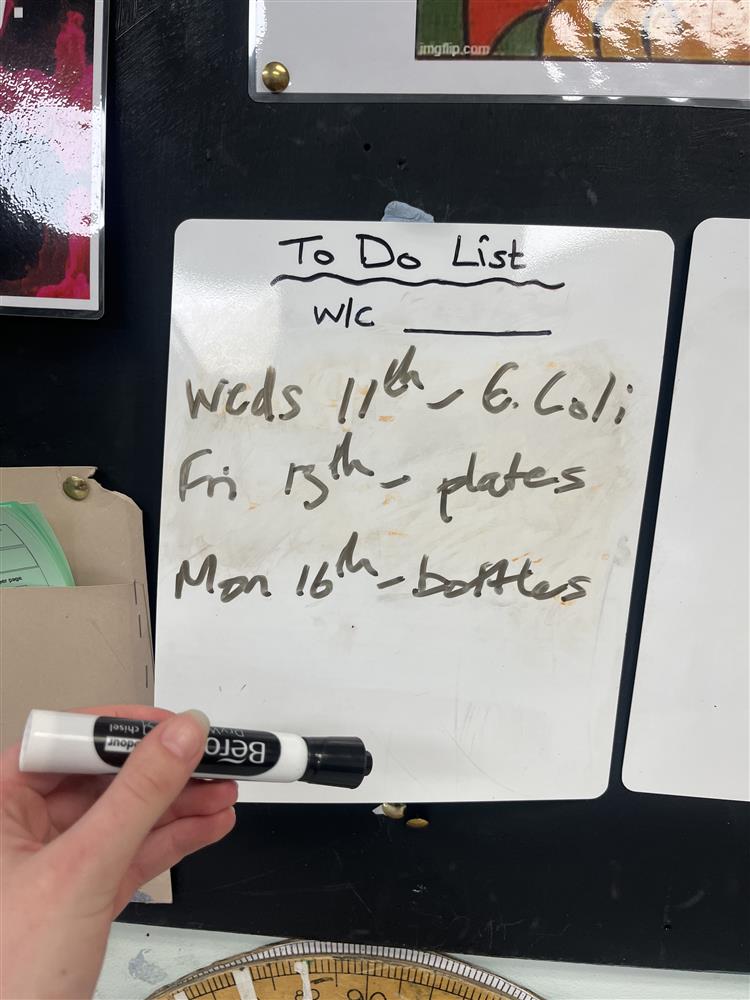 imgflip.com
To Do List
W/C
Weds 11th - E. Coli
Fri 13th - plates
Mon 16th - bottles
per page
Bero
chisel
odour
80